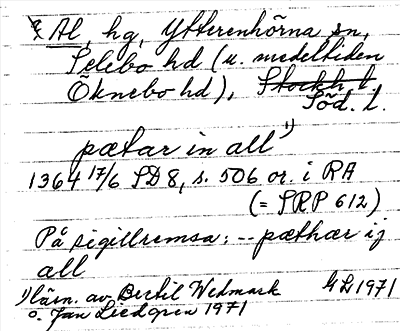 Al, hg, Ytterenhörna sn,
Selebo hd (u. medeltiden
Öknebo hd), Stockh l.
Söd. l.
pætar in all 1)
1364 17/6 SD 8, s. 506 or. i RA
(= SRP 612)
På sigillremsa: -- pæthær ij
all
1) lärn. av Bertil Wedmark GL 1971
o. Jan Liedgren 1971